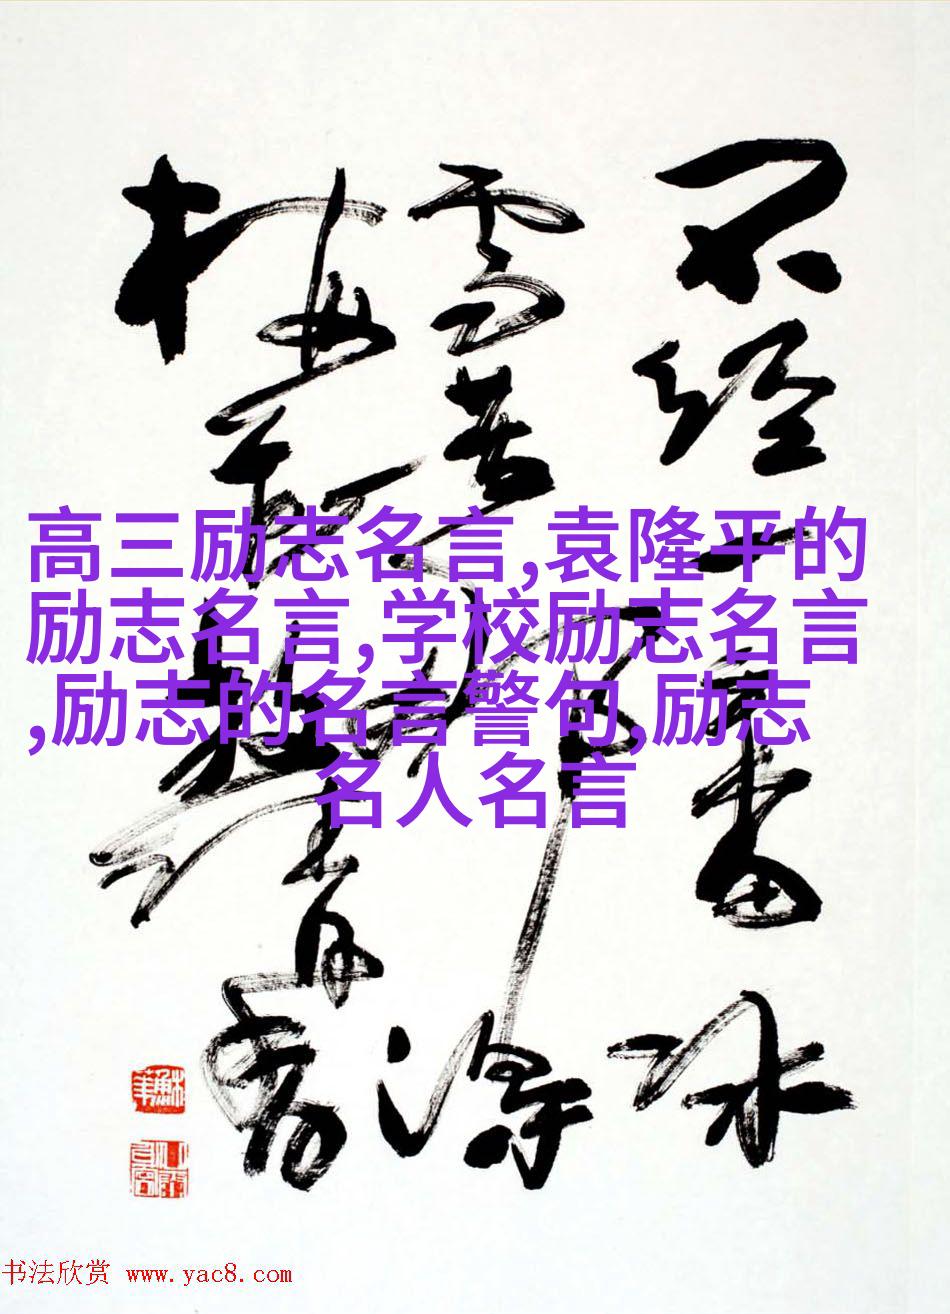 不经一番冰
雪苦那得
梅花清香
高三励志名言,袁隆平的
励志名言,学校励志名言
,励志的名言警句,励志
名人名言
书法欣赏 www.yac8.com